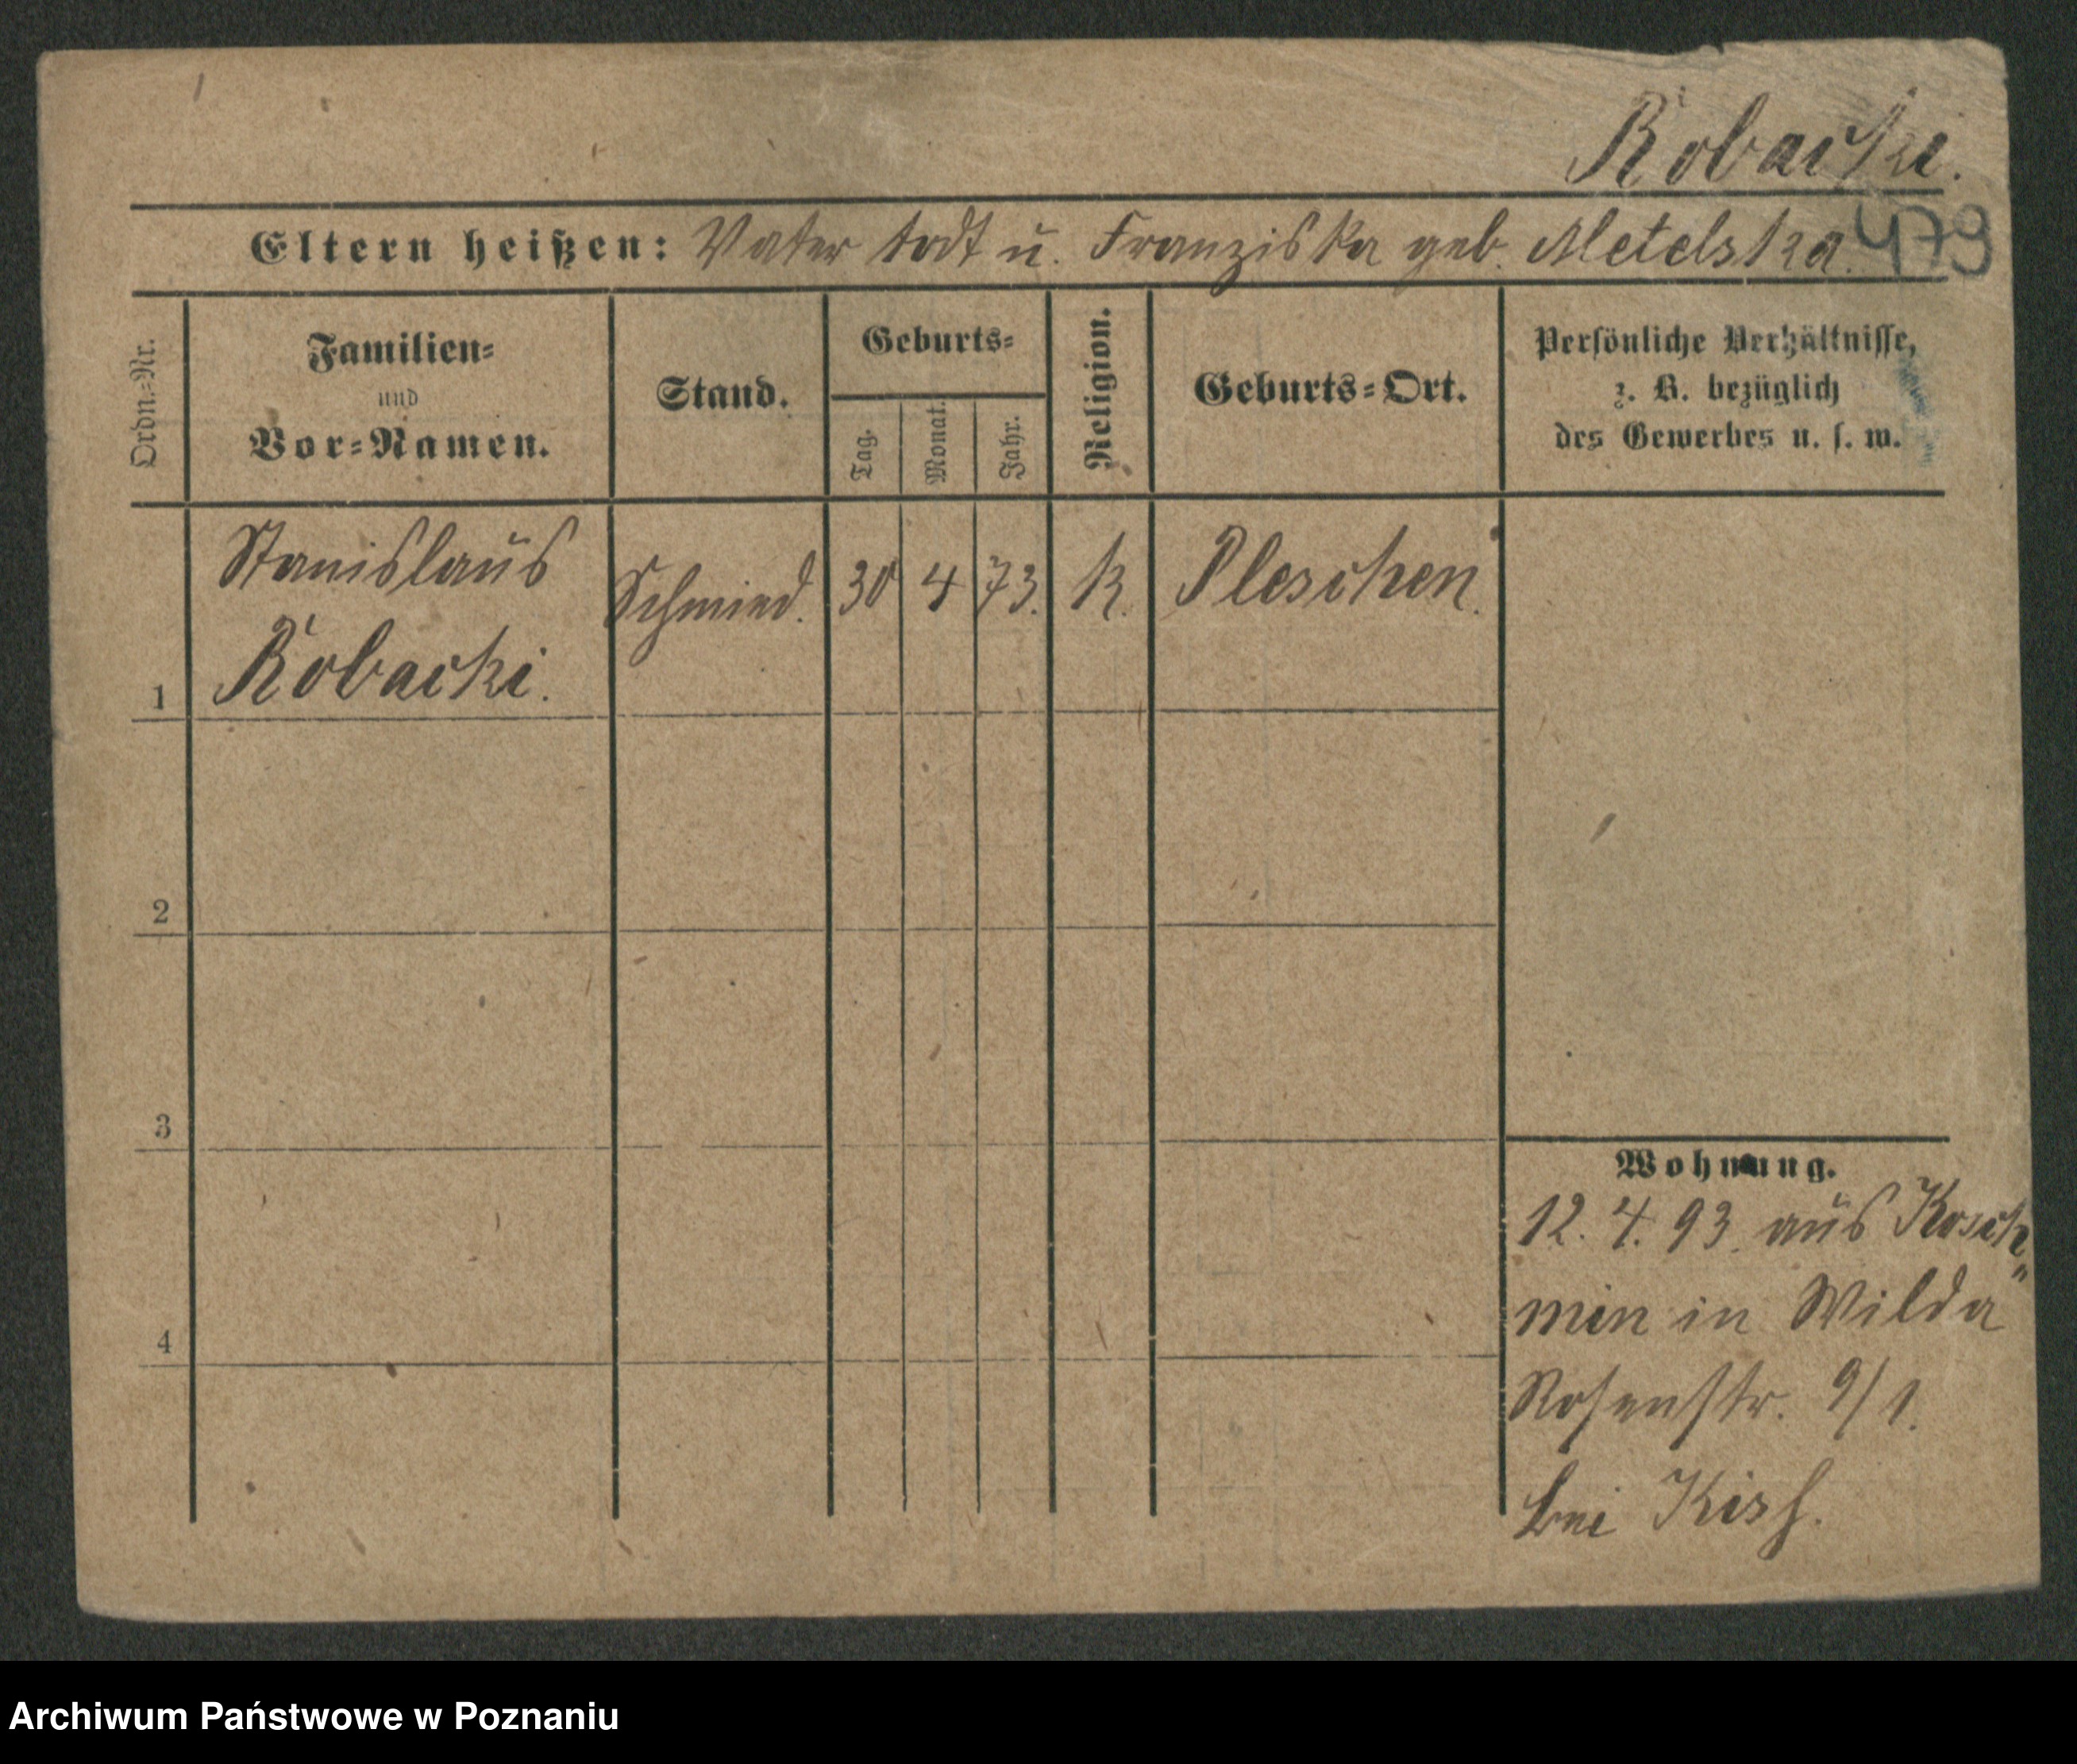 Robacki.
Eltern heißen: Vater todt u. Franziska geb. Metelska. 479
Ordn.=Nr.
Familien=
und
Vor=Namen.
Stand.
Geburts=
Tag.
Monat.
Jahr.
Religion.
Geburts=Ort.
Persönliche Verhältnisse,
z. B. bezüglich
des Gewerbes u. s. w.
Stanislaus
Robacki.
Schmied.
30
4
73.
k.
Pleschen.
1
2
3
4
Wohnung.
12. 4. 93. aus Kosch„
min in Wilda
Rosenstr. 9/1.
bei
Archiwum Państwowe w Poznaniu